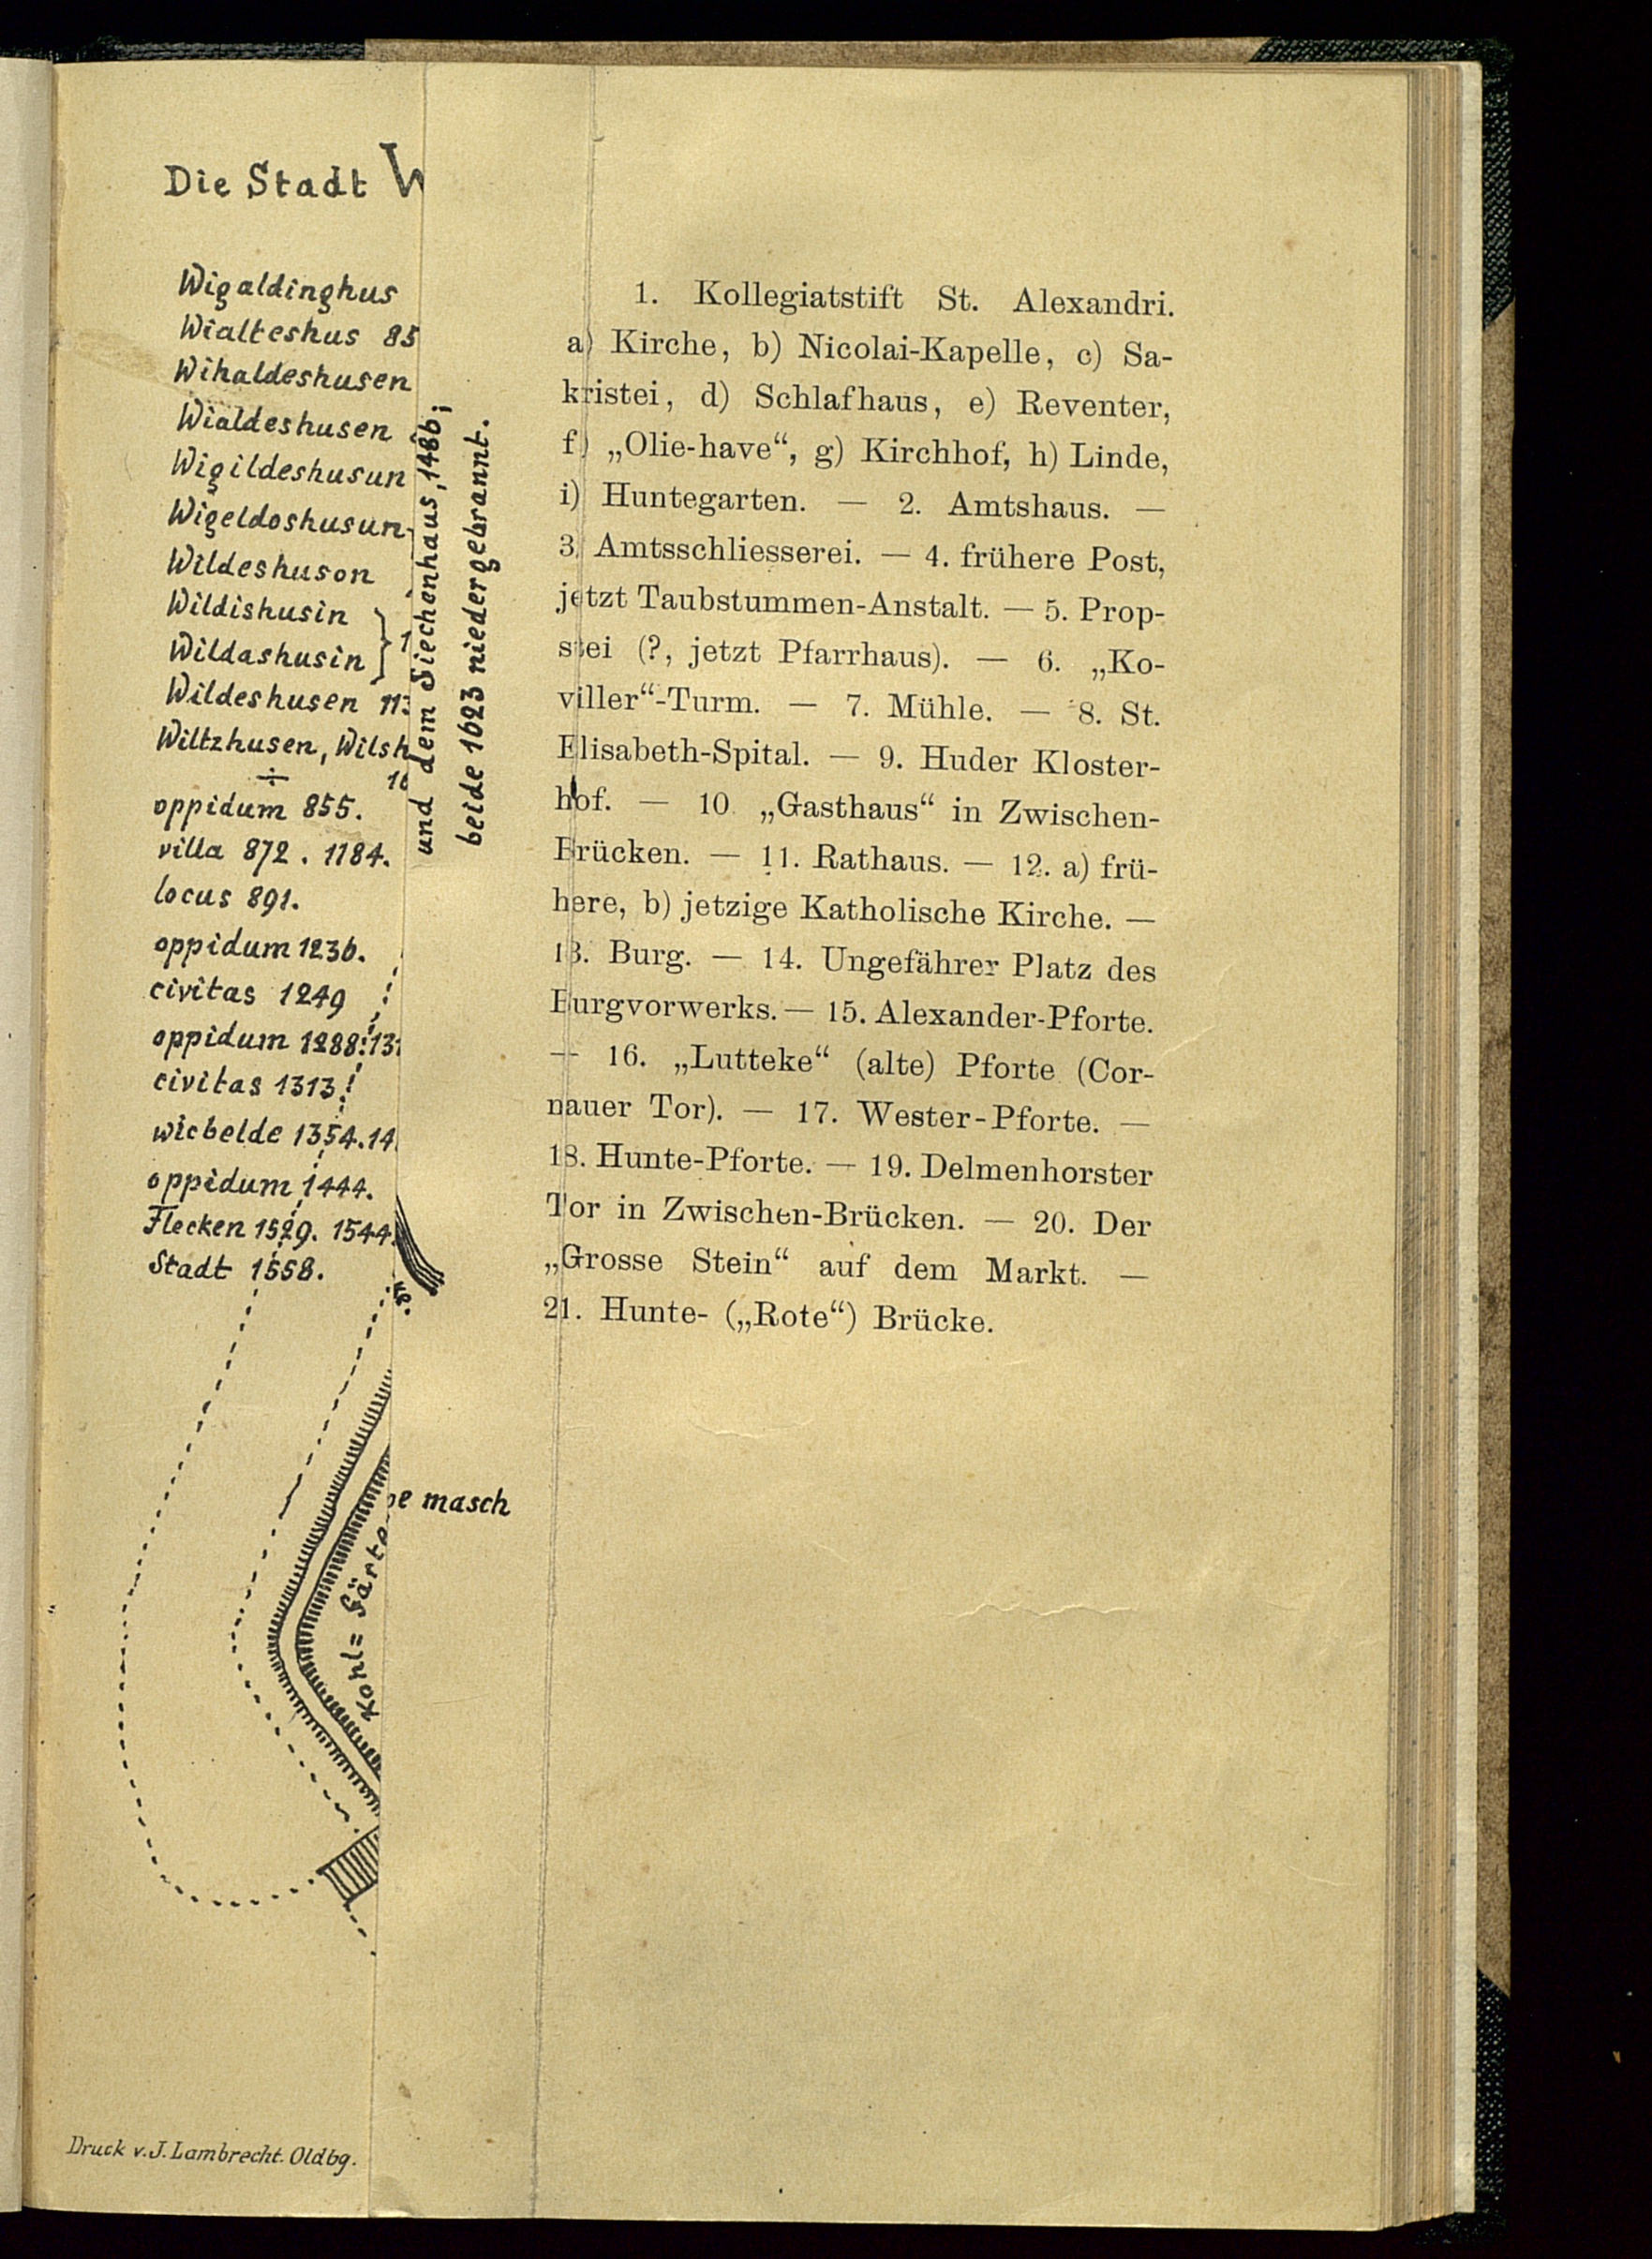 Die Stadt W
Wigaldinghus
Wialteshus 85
Wihaldeshusen
Wialdeshusen
Wigildeshusun
Wigeldoshusun
Wildeshuson
Wildishusin
Wildashusin } 1
Wildeshusen 113
Wiltzhusen, Wilsh
÷ 16
oppidum 855.
villa 872. 1184.
locus 891.
oppidum 1236.
civitas 1249
oppidum 1288. 13
civitas 1313.
wicbelde 1354. 14
oppidum 1444.
Flecken 1529. 1544.
Stadt 1558.
und dem Siechenhaus, 1486;
beide 1623 niedergebrannt.
masch
Kohl=
Druck v. J. Lambrecht. Oldbg.
1. Kollegiatstift St. Alexandri.
a) Kirche, b) Nicolai-Kapelle, c) Sa-
kristei, d) Schlafhaus, e) Reventer,
f) „Olie-have“, g) Kirchhof, h) Linde,
i) Huntegarten. — 2. Amtshaus. —
3. Amtsschliesserei. — 4. frühere Post,
jetzt Taubstummen-Anstalt. — 5. Prop-
stei (?, jetzt Pfarrhaus). — 6. „Ko-
viller“-Turm. — 7. Mühle. — 8. St.
Elisabeth-Spital. — 9. Huder Kloster-
hof. — 10. „Gasthaus“ in Zwischen-
Brücken. — 11. Rathaus. — 12. a) frü-
here, b) jetzige Katholische Kirche. —
13. Burg. — 14. Ungefährer Platz des
Burgvorwerks. — 15. Alexander-Pforte.
— 16. „Lutteke“ (alte) Pforte (Cor-
nauer Tor). — 17. Wester-Pforte. —
18. Hunte-Pforte. — 19. Delmenhorster
Tor in Zwischen-Brücken. — 20. Der
„Grosse Stein“ auf dem Markt. —
21. Hunte- („Rote“) Brücke.